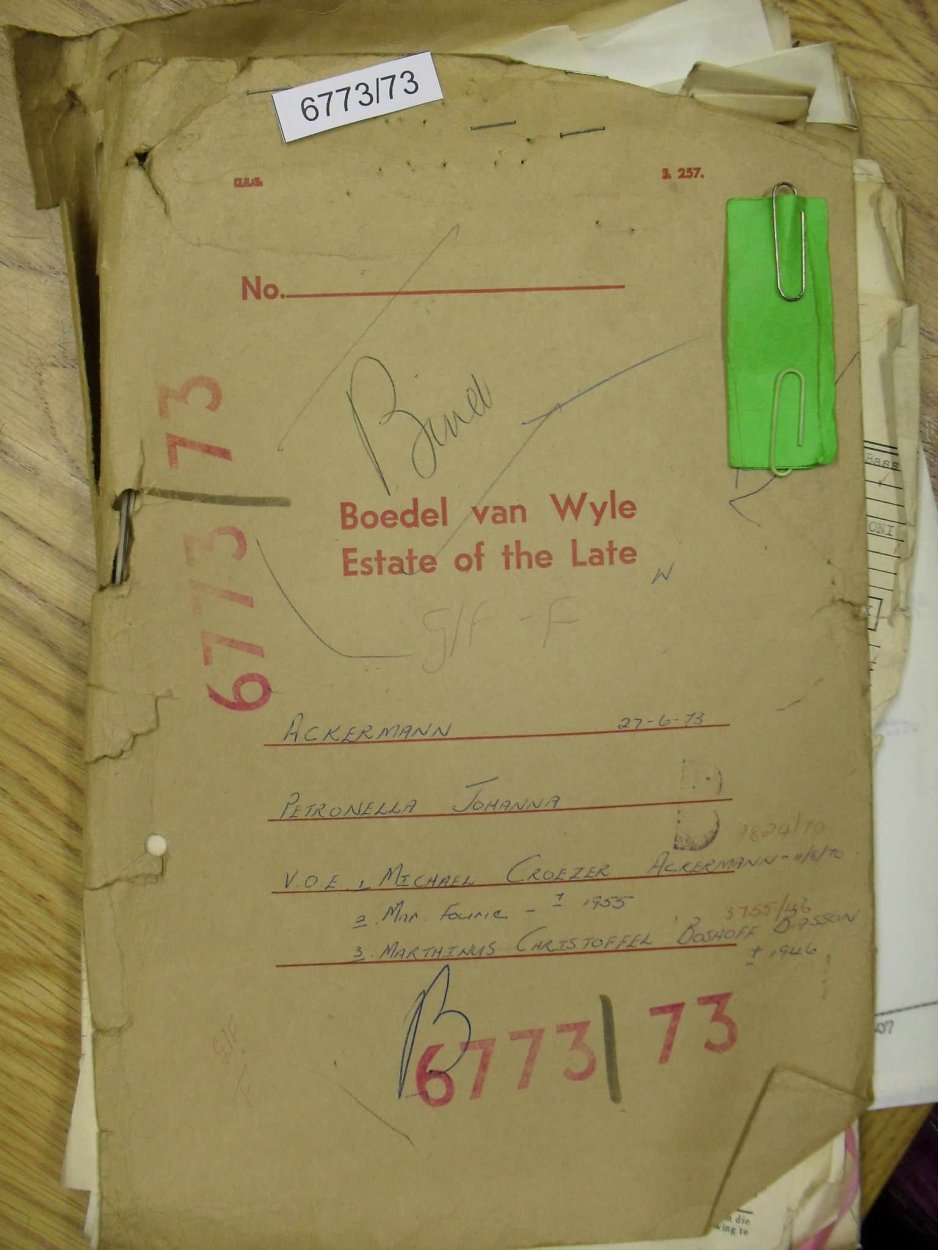 6773/73
J. 257.
No.
6773/73
Boedel van Wyle
Estate of the Late
W
G/F - F
ACKERMANN 27-6-73
PETRONELLA JOHANNA
B
9824/70
V.O.E. 1. MICHAEL CROEZER ACKERMANN - 11/8/70
2. Mnr. Fourie - ± 1955
3755/46
3. MARTHINUS CHRISTOFFEL BOSHOFF BASSON
± 1946
B
6773/73
G/F
F
Bass
ONI
07
die
ing te